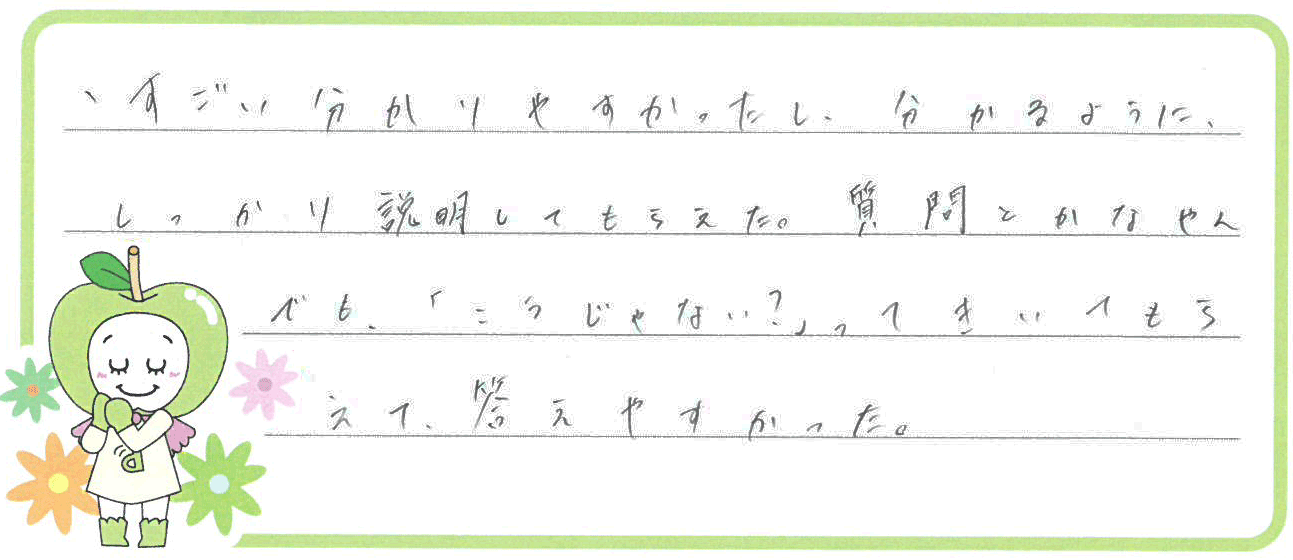 、すごい分かりやすかったし、分かるように、
しっかり説明してもらえた。質問とかなやん
でも、「こうじゃない?」ってきいてもら
えて、答えやすかった。